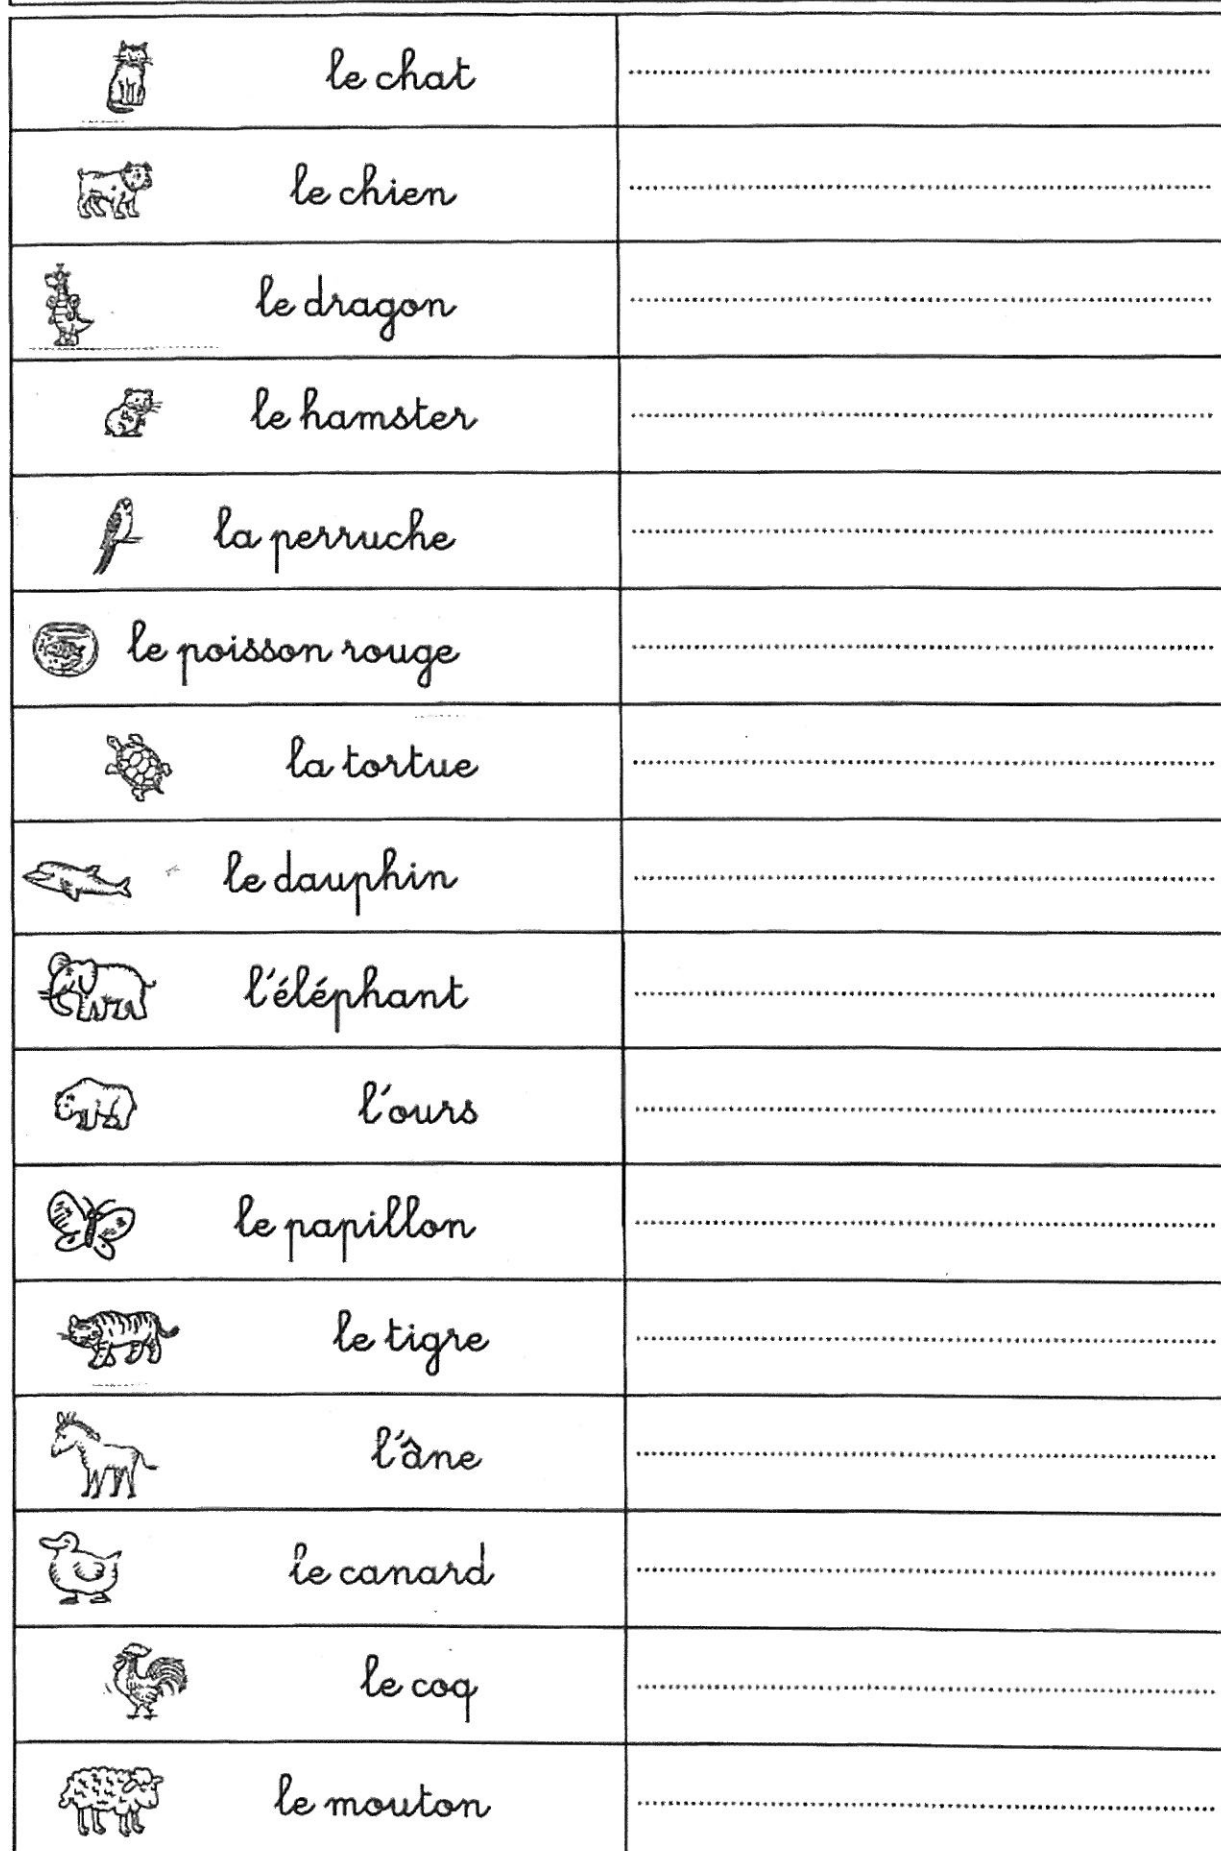 le chat
le chien
le dragon
le hamster
la perruche
le poisson rouge
la tortue
le dauphin
l'éléphant
l'ours
le papillon
le tigre
l'âne
le canard
le coq
le mouton